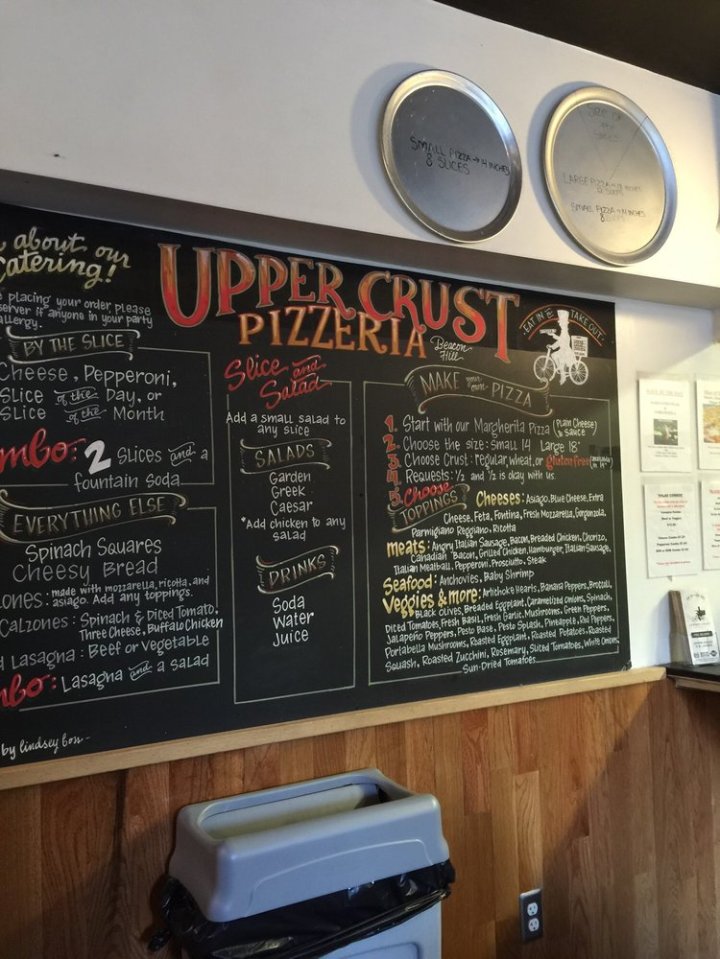 SMALL PIZZA → 14 INCHES
8 SLICES
SIZE OF
LARGE PIZZA → 18 INCHES
SMALL PIZZA → 14 INCHES
8 SLICES
about our
Catering!
placing your order please
server if anyone in your party
allergy.
BY THE SLICE
Cheese, Pepperoni,
Slice of the Day, or
Slice of the Month
mbo: 2 Slices and a
fountain Soda
EVERYTHING ELSE
Spinach Squares
Cheesy Bread
ZONES: made with mozzarella, ricotta, and
asiago. Add any toppings.
Calzones: Spinach & Diced Tomato,
Three Cheese, Buffalo Chicken
Lasagna: Beef or Vegetable
mbo: Lasagna and a salad
by lindsey
UPPER CRUST
PIZZERIA
Beacon
Hill
EAT IN & TAKE OUT
Slice and
Salad
Add a small salad to
any slice
SALADS
Garden
Greek
Caesar
*Add chicken to any
salad
DRINKS
Soda
Water
Juice
MAKE your own PIZZA
1. Start with our Margherita Pizza (Plain Cheese & Sauce)
2. Choose the size: Small 14" Large 18"
3. Choose Crust: regular, wheat, or gluten free
4. Requests: ½ and ½ is okay with us.
5. Choose
TOPPINGS
Cheeses: Asiago, Blue Cheese, Extra
Cheese, Feta, Fontina, Fresh Mozzarella, Gorgonzola,
Parmigiano Reggiano, Ricotta
Meats: Angry Italian Sausage, Bacon, Breaded Chicken, Chorizo,
Canadian Bacon, Grilled Chicken, Hamburger, Italian Sausage,
Italian Meatball, Pepperoni, Prosciutto, Steak
Seafood: Anchovies, Baby Shrimp
Veggies & more: Artichoke Hearts, Banana Peppers, Broccoli,
Black Olives, Breaded Eggplant, Caramelized Onions, Spinach,
Diced Tomatoes, Fresh Basil, Fresh Garlic, Mushrooms, Green Peppers,
Jalapeño Peppers, Pesto Base, Pesto Splash, Pineapple, Red Peppers,
Portabella Mushrooms, Roasted Eggplant, Roasted Potatoes, Roasted
Squash, Roasted Zucchini, Rosemary, Sliced Tomatoes, White Onions,
Sun-Dried Tomatoes